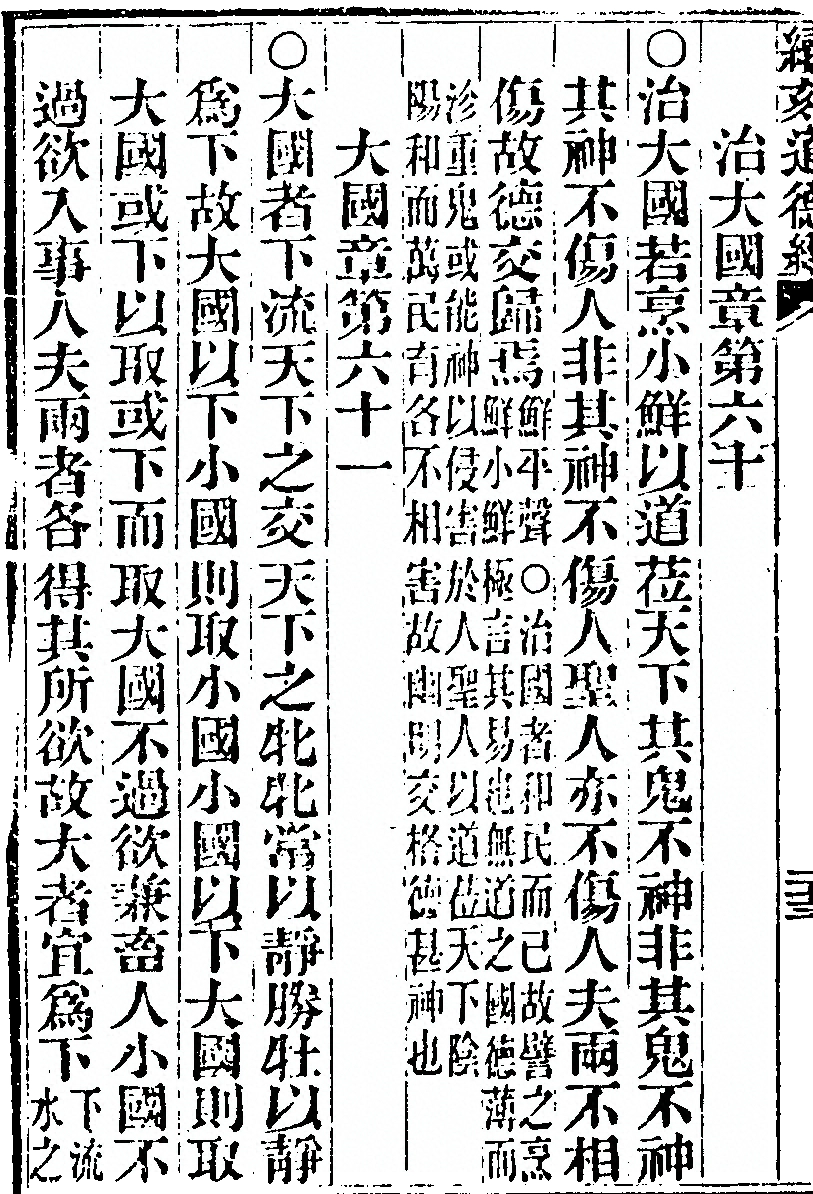 刻道德經
治大國章第六十
○治大國若烹小鮮以道莅天下其鬼不神非其鬼不神
其神不傷人非其神不傷人聖人亦不傷人夫兩不相
傷故德交歸焉鮮平聲○治國者和民而已故譬之烹
鮮小鮮極言其易也無道之國德薄而
沴重鬼或能神以侵害於人聖人以道莅天下陰
陽和而萬民育各不相害故幽明交格德甚神也
大國章第六十一
○大國者下流天下之交天下之牝牝常以靜勝牡以靜
爲下故大國以下小國則取小國小國以下大國則取
大國或下以取或下而取大國不過欲兼畜人小國不
過欲入事人夫兩者各得其所欲故大者宜爲下下流
水之